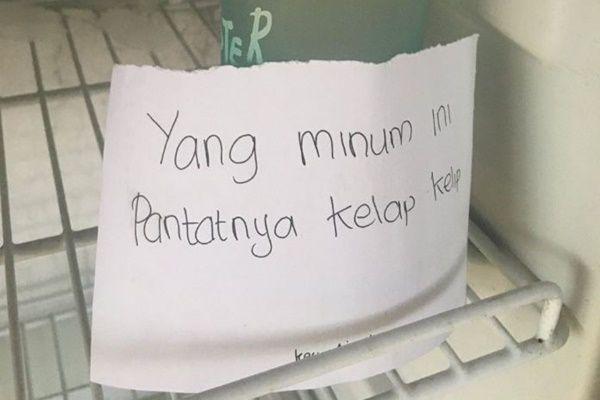 TER
Yang minum ini
Pantatnya kelap kelip